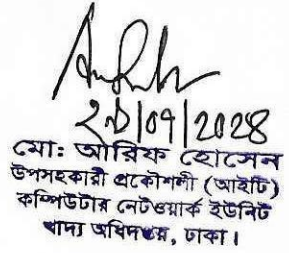 ২৮/০৭/২০২৪
মো: আরিফ হোসেন
উপসহকারী প্রকৌশলী (আইটি)
কম্পিউটার নেটওয়ার্ক ইউনিট
খাদ্য অধিদপ্তর, ঢাকা।